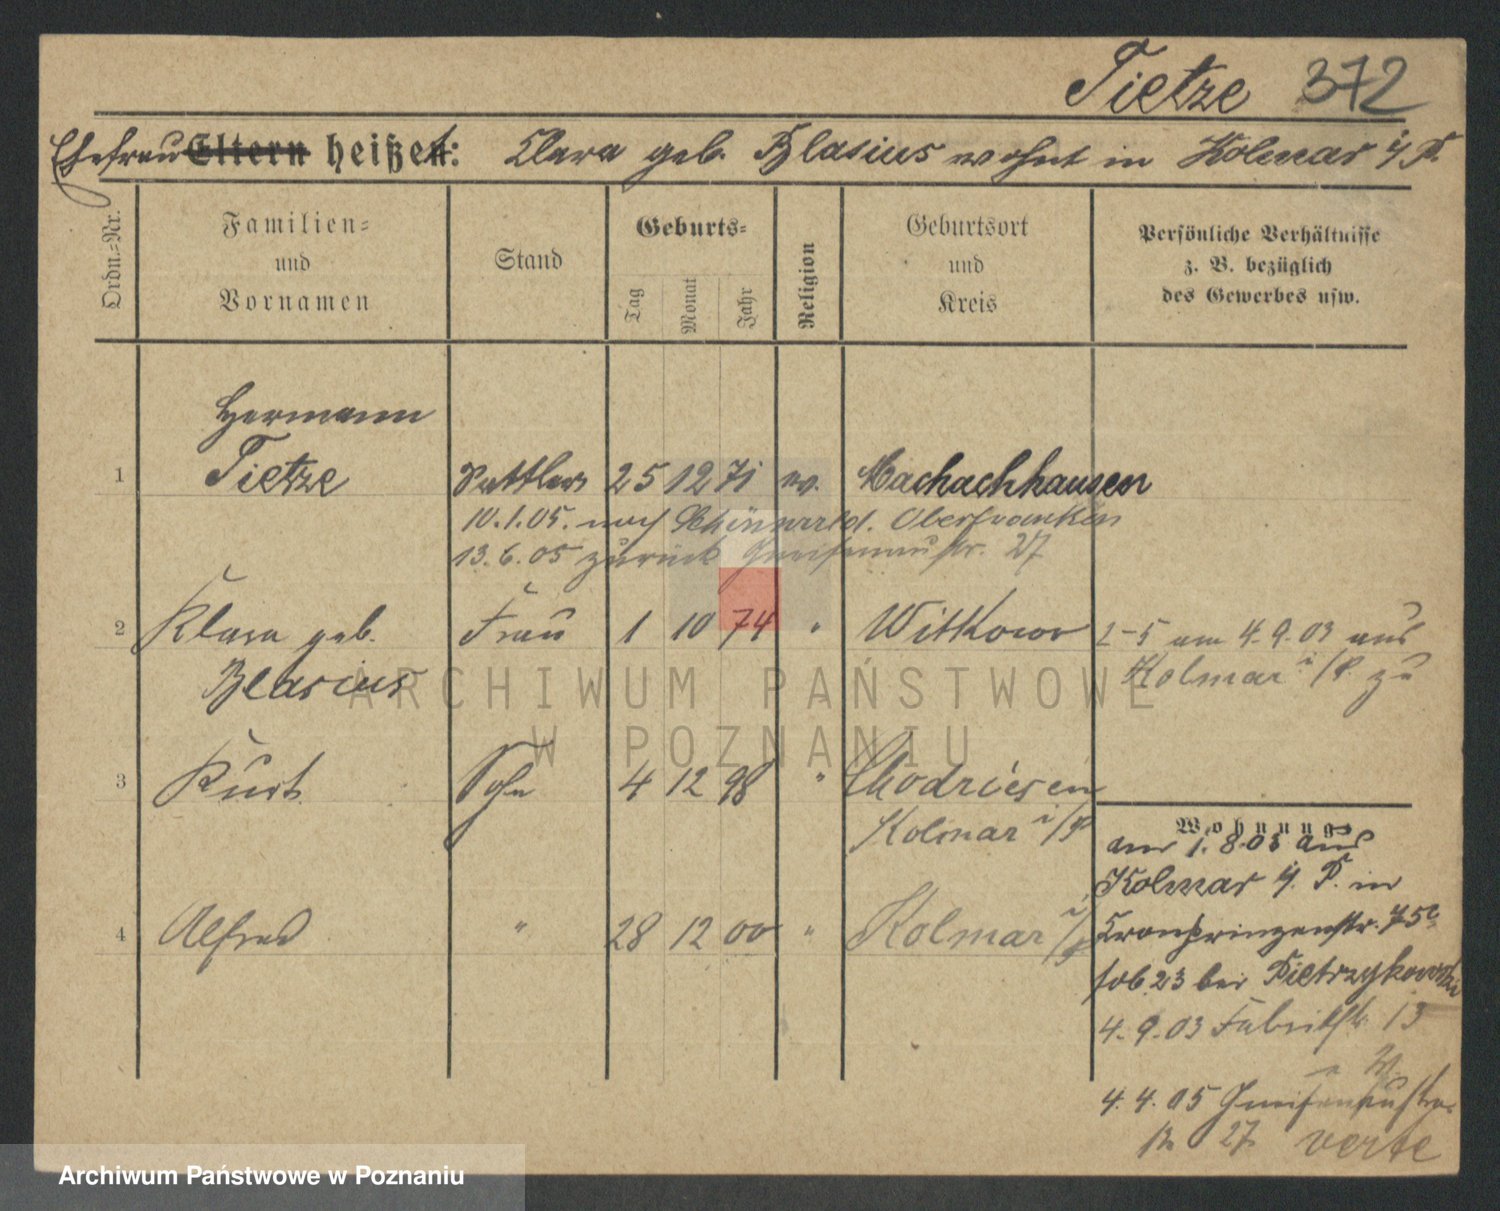 Tietze 372
Ehefrau Eltern heißet: Clara geb. Blasius wohnt in Kolmar i/P.
Ordn.-Nr.
Familien-
und
Vornamen
Stand
Geburts-
Tag
Monat
Jahr
Religion
Geburtsort
und
Kreis
Persönliche Verhältnisse
z. B. bezüglich
des Gewerbes usw.
Hermann
1 Tietze Sattler 25 12 71 ev. Machachhausen
10.1.05. nach Schönwald. Oberfranken
13.6.05 zurück Gneisenaustr. 27
2 Klara geb. Frau 1 10 74 " Witkowo 2-5 am 4.9.03 aus
Blasius Kolmar i/P. zu
3 Kurt Sohn 4 12 98 " Chodziesen
Kolmar i/P
Wohnung
am 1.8.03 aus
Kolmar i/P. in
4 Alfred " 28 12 00 " Kolmar i/P
Kronprinzenstr. 75
23 bei Pietrzykowski
4.9.03 Fabrikstr. 13
4.4.05 Gneisenaustr.
27. verte
ARCHIWUM PAŃSTWOWE
W POZNANIU
Archiwum Państwowe w Poznaniu